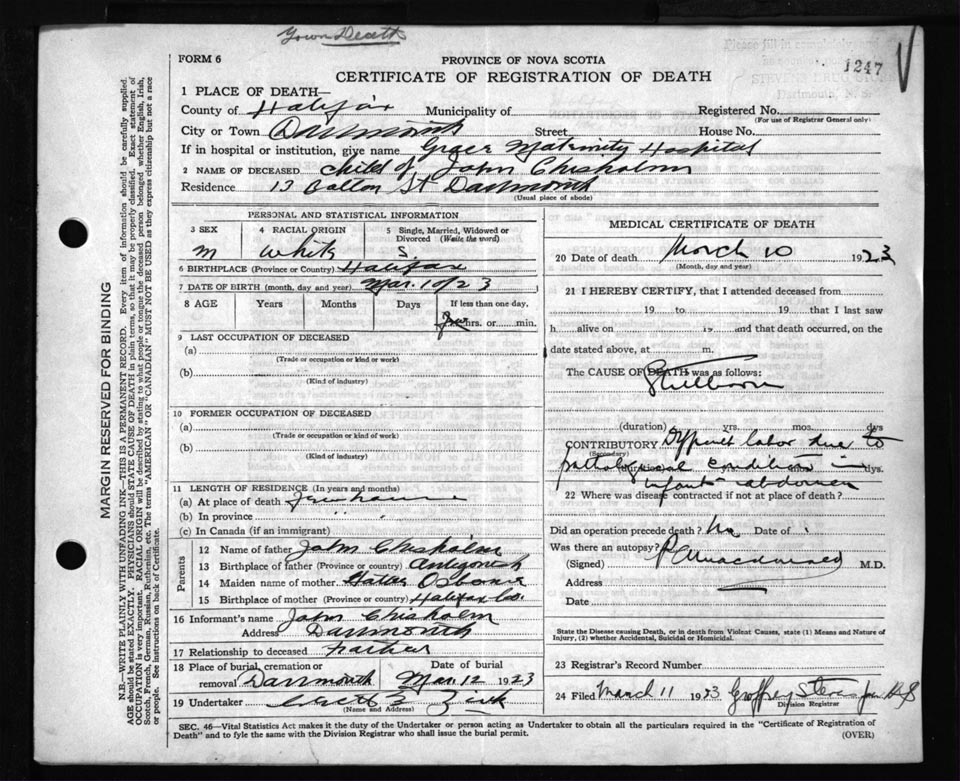 Town Death
FORM 6
PROVINCE OF NOVA SCOTIA
CERTIFICATE OF REGISTRATION OF DEATH
1247
1 PLACE OF DEATH—
County of Halifax Municipality of
Registered No.
(For use of Registrar General only)
City or Town Dartmouth Street House No.
If in hospital or institution, give name Grace Maternity Hospital
2 NAME OF DECEASED Child of John Chisholm
Residence 13 St Dartmouth
(Usual place of abode)
MARGIN RESERVED FOR BINDING
N.B.—WRITE PLAINLY WITH UNFADING INK—THIS IS A PERMANENT RECORD. Every item of information should be carefully supplied.
AGE should be stated EXACTLY. PHYSICIANS should STATE CAUSE OF DEATH in plain terms, so that it may be properly classified. Exact statement of
OCCUPATION is very important. RACIAL ORIGIN will be described by stating to what people or tongue the deceased person belonged whether English, Irish,
Scotch, French, German, Russian, Ruthenian, etc. The terms "AMERICAN" OR "CANADIAN" MUST NOT BE USED as they express citizenship but not a race
or people. See instructions on back of Certificate.
PERSONAL AND STATISTICAL INFORMATION
3 SEX 4 RACIAL ORIGIN 5 Single, Married, Widowed or
Divorced (Write the word)
m White S.
6 BIRTHPLACE (Province or Country) Halifax
7 DATE OF BIRTH (month, day and year) Mar. 10/23
8 AGE Years Months Days If less than one day,
hrs. or min.
9 LAST OCCUPATION OF DECEASED
(a)
(Trade or occupation or kind or work)
(b)
(Kind of industry)
10 FORMER OCCUPATION OF DECEASED
(a)
(Trade or occupation or kind of work)
(b)
(Kind of industry)
11 LENGTH OF RESIDENCE (In years and months)
(a) At place of death
(b) In province " "
(c) In Canada (if an immigrant)
Parents
12 Name of father John Chisholm
13 Birthplace of father (Province or country) Antigonish
14 Maiden name of mother Hattie Osborne
15 Birthplace of mother (Province or country) Halifax Co.
16 Informant's name John Chisholm
Address Dartmouth
17 Relationship to deceased Father
18 Place of burial, cremation or Date of burial
removal Dartmouth Mar. 12 1923
19 Undertaker Zink
(Name and Address)
MEDICAL CERTIFICATE OF DEATH
20 Date of death March 10 1923
(Month, day and year)
21 I HEREBY CERTIFY, that I attended deceased from
19 to 19 that I last saw
h alive on 19 and that death occurred, on
date stated above, at m.
The CAUSE OF DEATH was as follows:
Stillborn
(duration) yrs. mos. dys
CONTRIBUTORY Difficult labor due to
(Secondary)
pathological condition in dys.
infants abdomen
22 Where was disease contracted if not at place of death?
Did an operation precede death? No Date of
Was there an autopsy?
(Signed) Macdonald M.D.
Address
Date
State the Disease causing Death, or in death from Violent Causes, state (1) Means and Nature of
Injury, (2) whether Accidental, Suicidal or Homicidal.
23 Registrar's Record Number
24 Filed March 11 1923 Geoffrey Stevens
Division Registrar
SEC. 46—Vital Statistics Act makes it the duty of the Undertaker or person acting as Undertaker to obtain all the particulars required in the "Certificate of Registration of
Death" and to fyle the same with the Division Registrar who shall issue the burial permit.
(OVER)